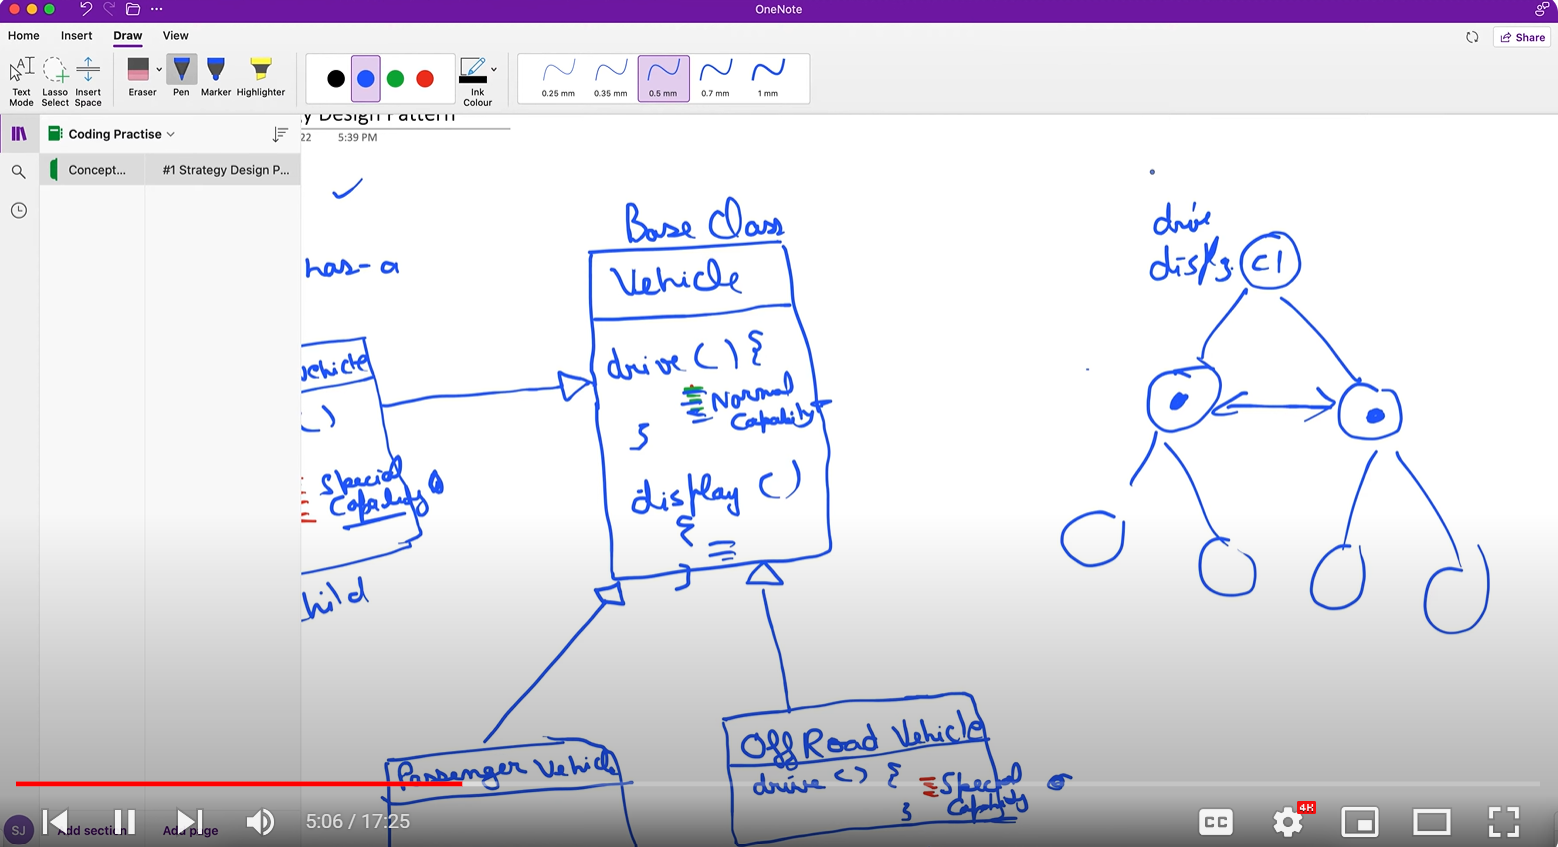 OneNote
Home Insert Draw View
Share
Text Mode
Lasso Select
Insert Space
Eraser
Pen
Marker
Highlighter
Ink Colour
0.25 mm
0.35 mm
0.5 mm
0.7 mm
1 mm
Coding Practise
Concept...
#1 Strategy Design P...
y Design Pattern
22 5:39 PM
has-a
ehicle
()
Special
Capability
hild
Base Class
Vehicle
drive () {
Normal
Capability
}
display ()
{
}
drive
C1
Passenger Vehicle
Off Road Vehicle
drive () {
Special
Capability
}
SJ
Add section
Add page
5:06 / 17:25
CC
4K